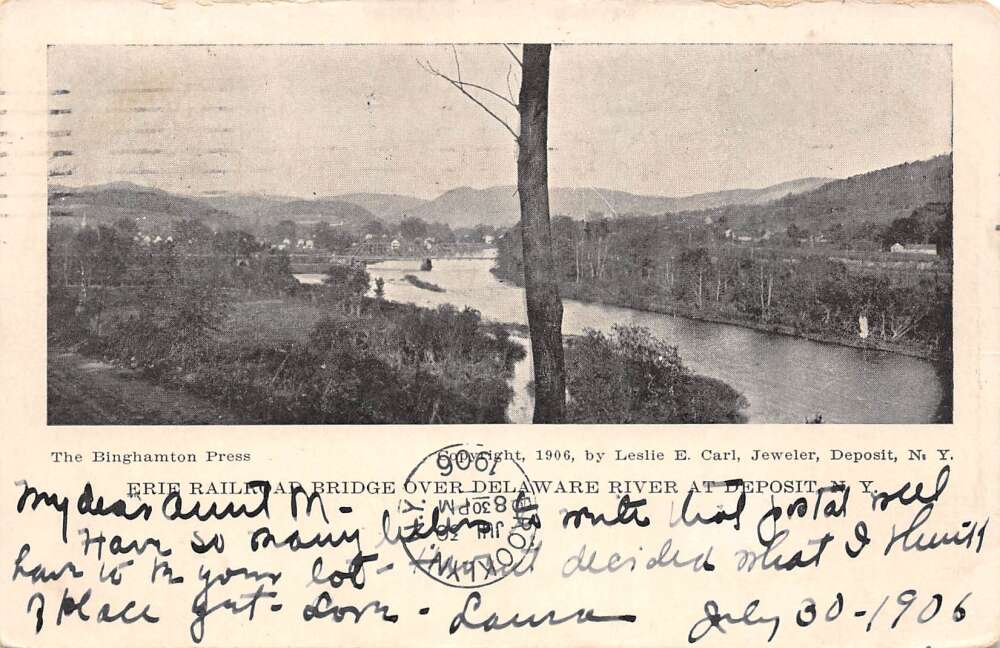 The Binghamton Press
Copyright, 1906, by Leslie E. Carl, Jeweler, Deposit, N. Y.
ERIE RAILROAD BRIDGE OVER DELAWARE RIVER AT DEPOSIT, N. Y.
My dear Aunt M-
Have so many letters to write that postal will
have to be your lot - Haven't decided what I think
of place yet - Love - Laura July 30 - 1906
BROOKLYN, N.Y.
JUL 30
8 30 PM
1906